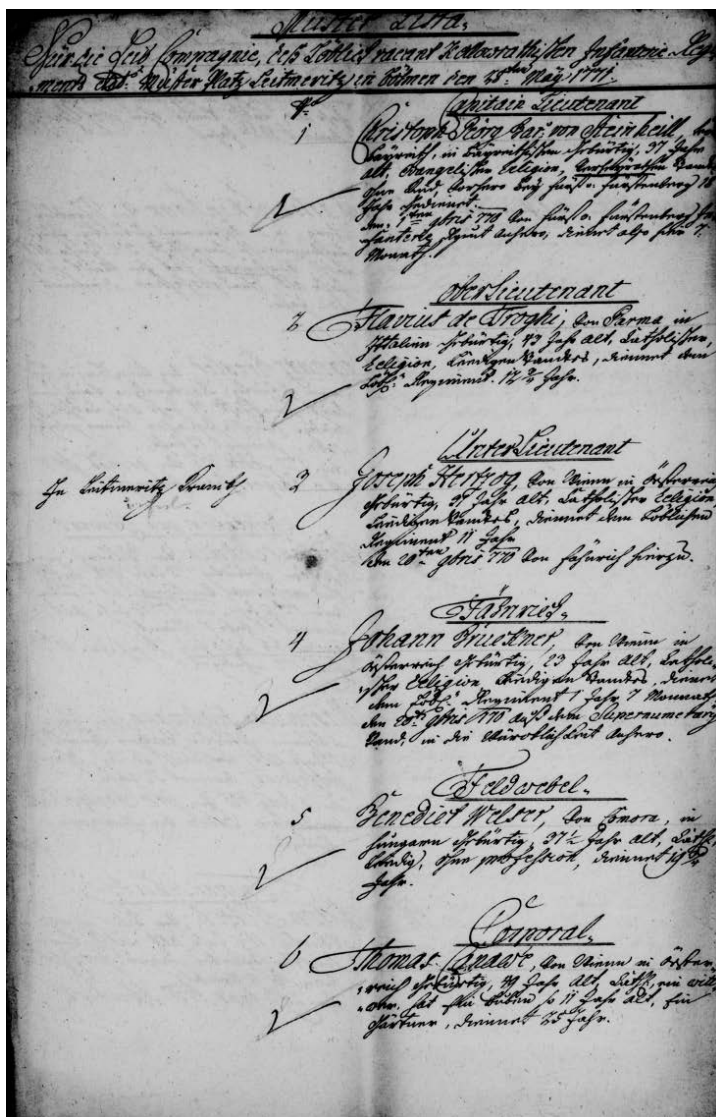 Muster Lista,
Für die Leib Compagnie, des Löblich vacant Kollowrathischen Infanterie Regi-
ments Muster Platz Leitmeritz in Böhmen den May 1771.
Nro
Capitain Lieutenant
1 Christoph Georg Bar: von Steinheill, von
Bayreith, in Bayreithischen gebürtig, 37 Jahr
alt, evangelischer Religion,
ohne Kind, vorhero bey Fürst v: Fürstenberg 18
Jahr gedienet.
den 1ten 9bris 770 von Fürst v: Fürstenberg In-
fanterie Regiment anhero, dienet also hier 7
Monath.
Ober Lieutenant
2 Flavius de Troghi, von Parma in
Italien gebürtig, 43 Jahr alt, Catholischer
Religion, Leedigen Standes, dienet dem
Löbl: Regiment 12 Jahr.
Unter Lieutenant
In Leitmeritz Krank
3 Joseph Hertzog, von Wienn in Österreich
gebürtig, 37 Jahr alt, Catholischer Religion,
Leedigen Standes, dienet dem Löblichen
Regiment 11 Jahr
den 20ten 9bris 770 von Fähnrich hierzu.
Fähnrich.
4 Johann Brückner, von Wienn in
Österreich gebürtig, 23 Jahr alt, Catholi-
scher Religion Leedigen Standes, dienet
dem Löbl: Regiment 1 Jahr 7 Monath
den 20ten 9bris 770 aus dem Supernumerary
Stand, in die Würcklichkeit anhero.
Feldwebel.
5 Benedict Welser, von Comora, in
Hungarn gebürtig, 37½ Jahr alt, Cath:
Leedig, ohne profession, dienet
Jahr.
Corporal.
6 Thomas, von Wienn in Öster-
reich gebürtig, 49 Jahr alt, Cath:, ein Witt-
wer, hat Buben 11 Jahr alt, Ein
Gärtner, dienet 25 Jahr.